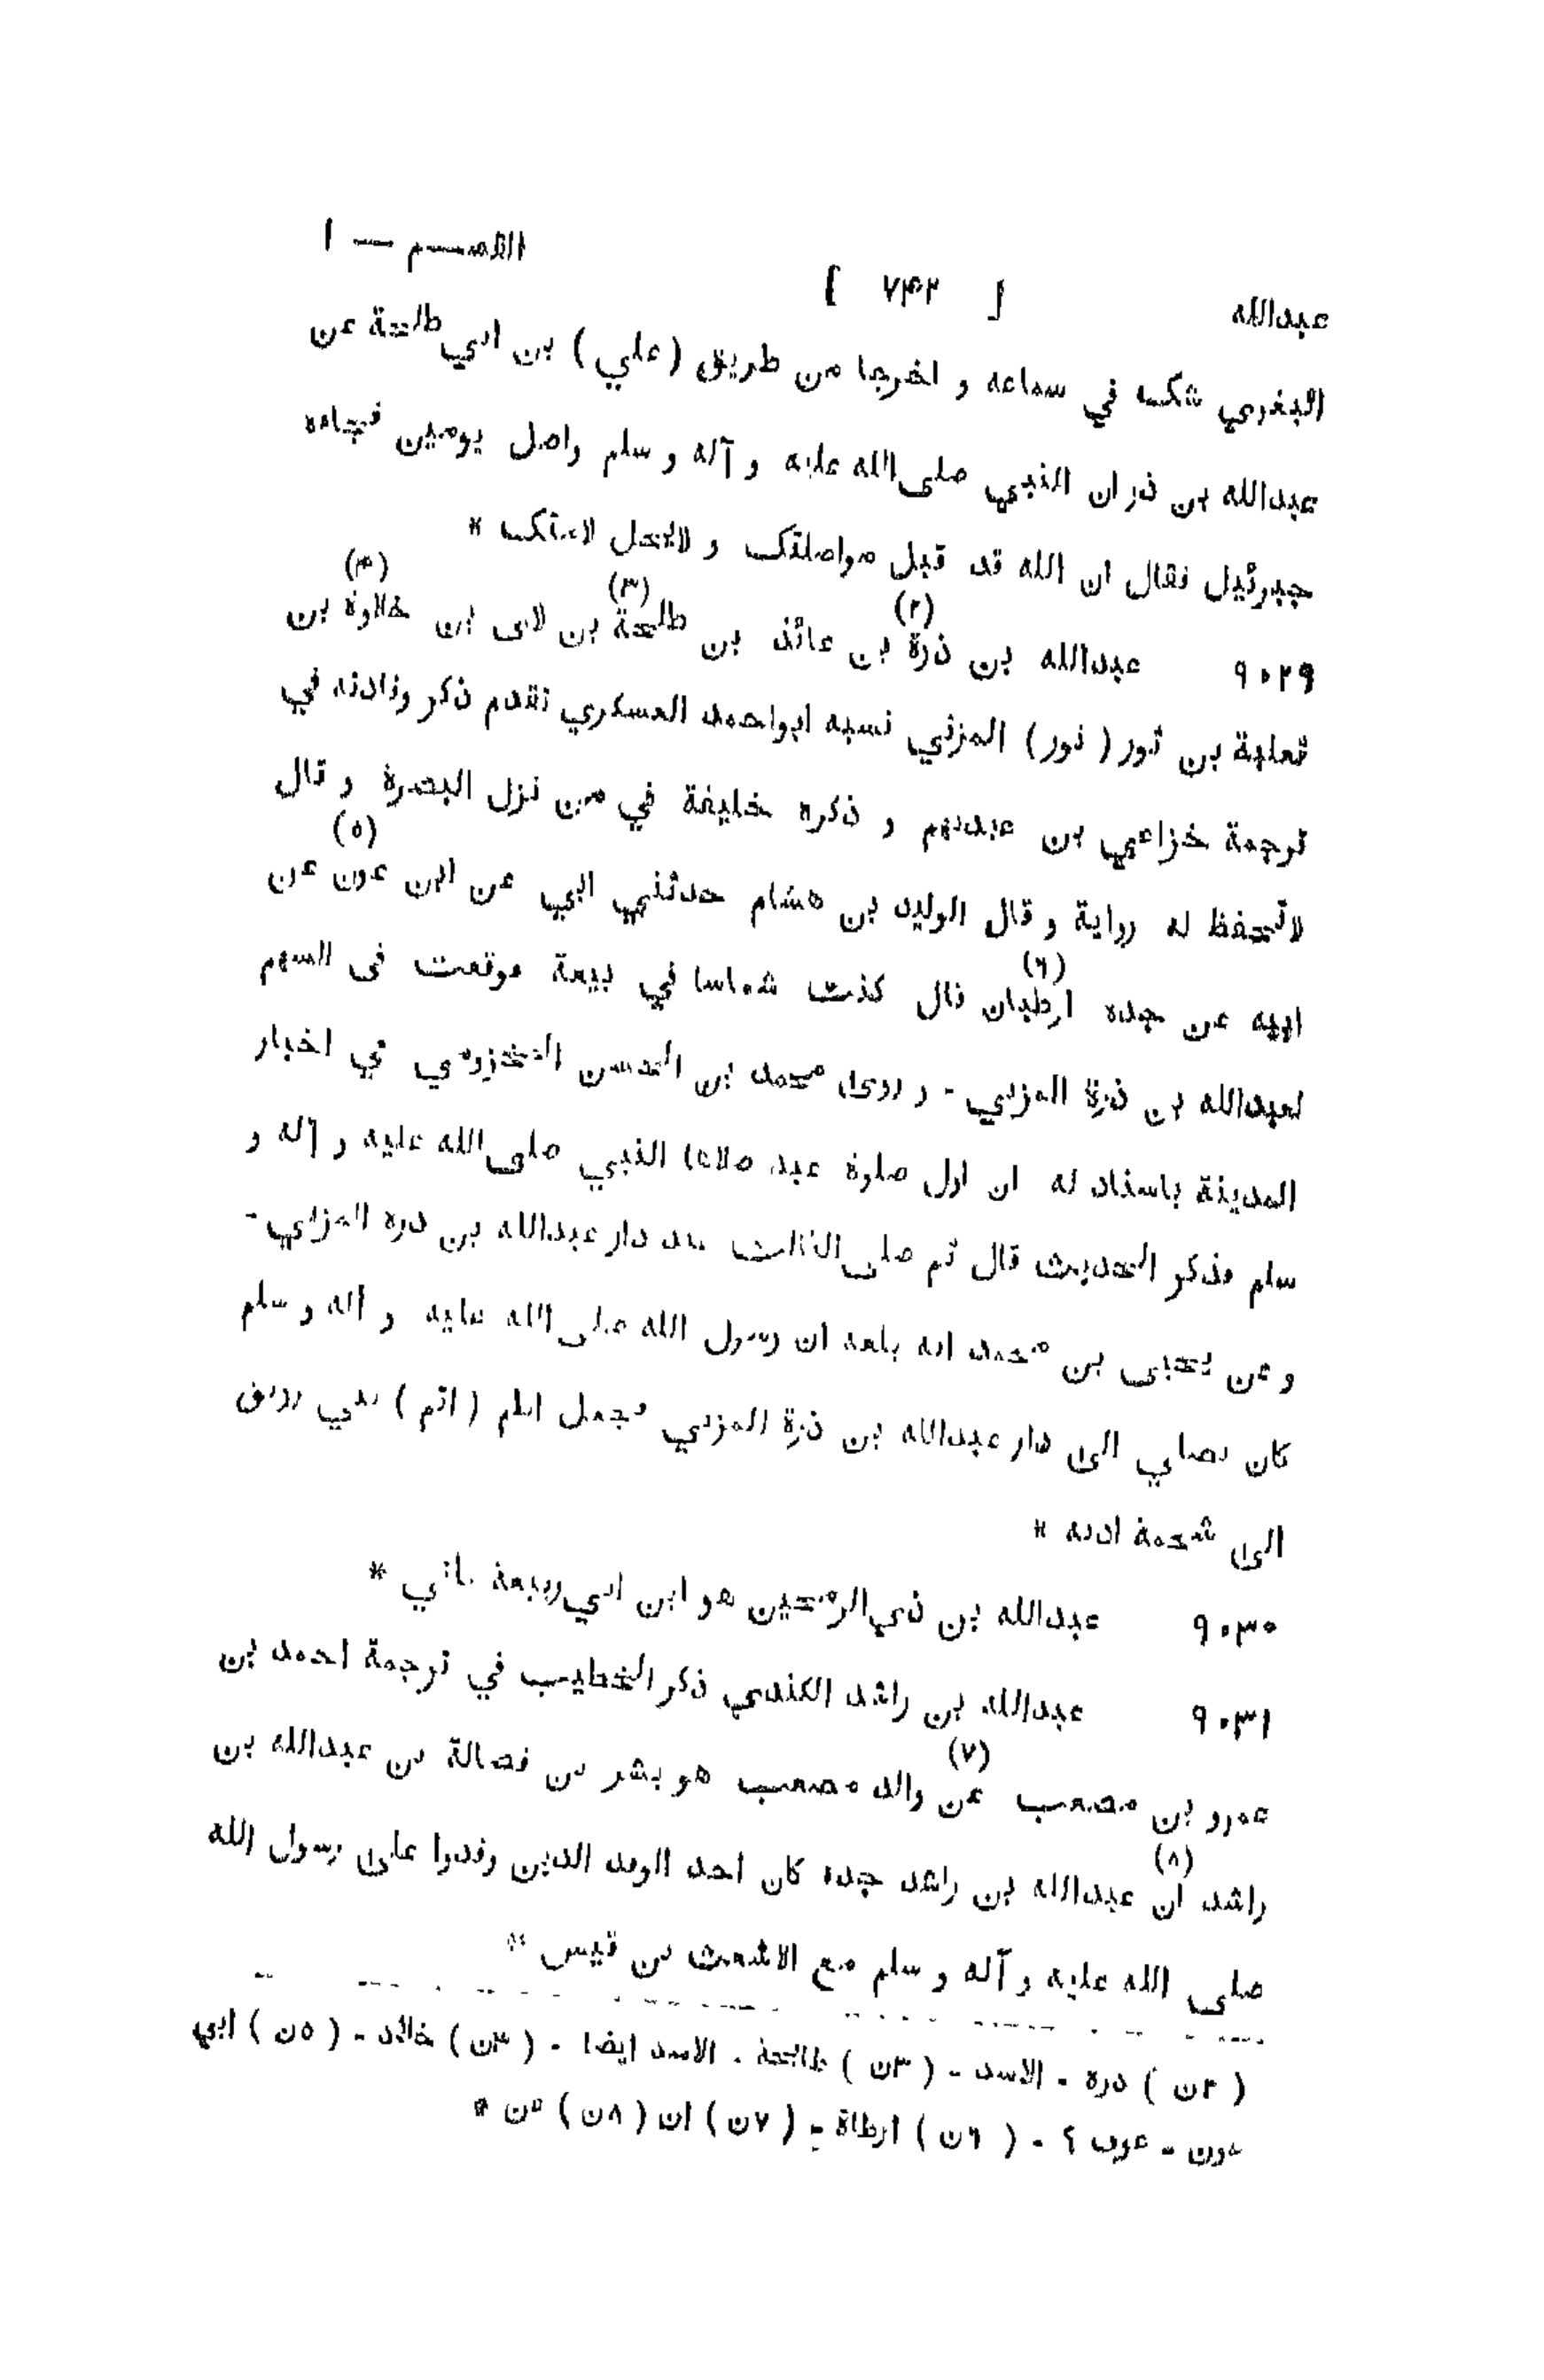 عبدالله [ ٧٤٢ ] القسم — ١
البغوي شك في سماعه و اخرجا من طريق (علي) بن ابي طلحة عن
عبدالله بن ذر ان النبي صلى الله عليه و آله و سلم واصل يومين فجاءه
جبرئيل فقال ان الله قد قبل مواصلتك و لا يحل لامتك *
٩٠٢٩ عبدالله بن ذرة (٢) بن عائذ بن طلحة (٣) بن لاى ابن خلاوة (٤) بن
ثعلبة بن ثور ( نور ) المزني نسبه ابواحمد العسكري تقدم ذكر وفادته في
ترجمة خزاعي بن عبدنهم و ذكره خليفة في من نزل البصرة و قال
لا تحفظ له رواية و قال الوليد بن هشام حدثني ابي عن ابن عون (٥) عن
ابيه عن جده ارطبان (٦) قال كنت شماسا في بيعة فوقعت فى السهم
لعبدالله بن ذرة المزني - و روى محمد بن الحسن المخزومي في اخبار
المدينة باسناد له ان اول صلوة عيد صلاها النبي صلى الله عليه و آله و
سلم فذكر الحديث قال ثم صلى الثالث عند دار عبدالله بن دره المزني -
و عن يحيى بن محمد انه بلغه ان رسول الله صلى الله عليه و آله و سلم
كان يصلي الى دار عبدالله بن ذرة المزني فجعل اطم ( اتم ) بني زريق
الى شحمة اذنه *
٩٠٣٠ عبدالله بن ذي الرمحين هو ابن ابي ربيعة ياتي *
٩٠٣١ عبدالله بن راشد الكندي ذكر الخطيب في ترجمة احمد بن
عمرو بن مصعب عن (٧) والد مصعب هو بشر بن فضالة بن عبدالله بن
راشد ان (٨) عبدالله بن راشد جده كان احد الوفد الذين وفدوا على رسول الله
صلى الله عليه و آله و سلم مع الاشعث بن قيس *
( ٢ن ) دره - الاسد - ( ٣ن ) طالحة - الاسد ايضا - ( ٤ن ) خالد - ( ٥ن ) ابي
عون - عوف ؟ - ( ٦ن ) ارطاة - ( ٧ن ) ان ( ٨ن ) من *